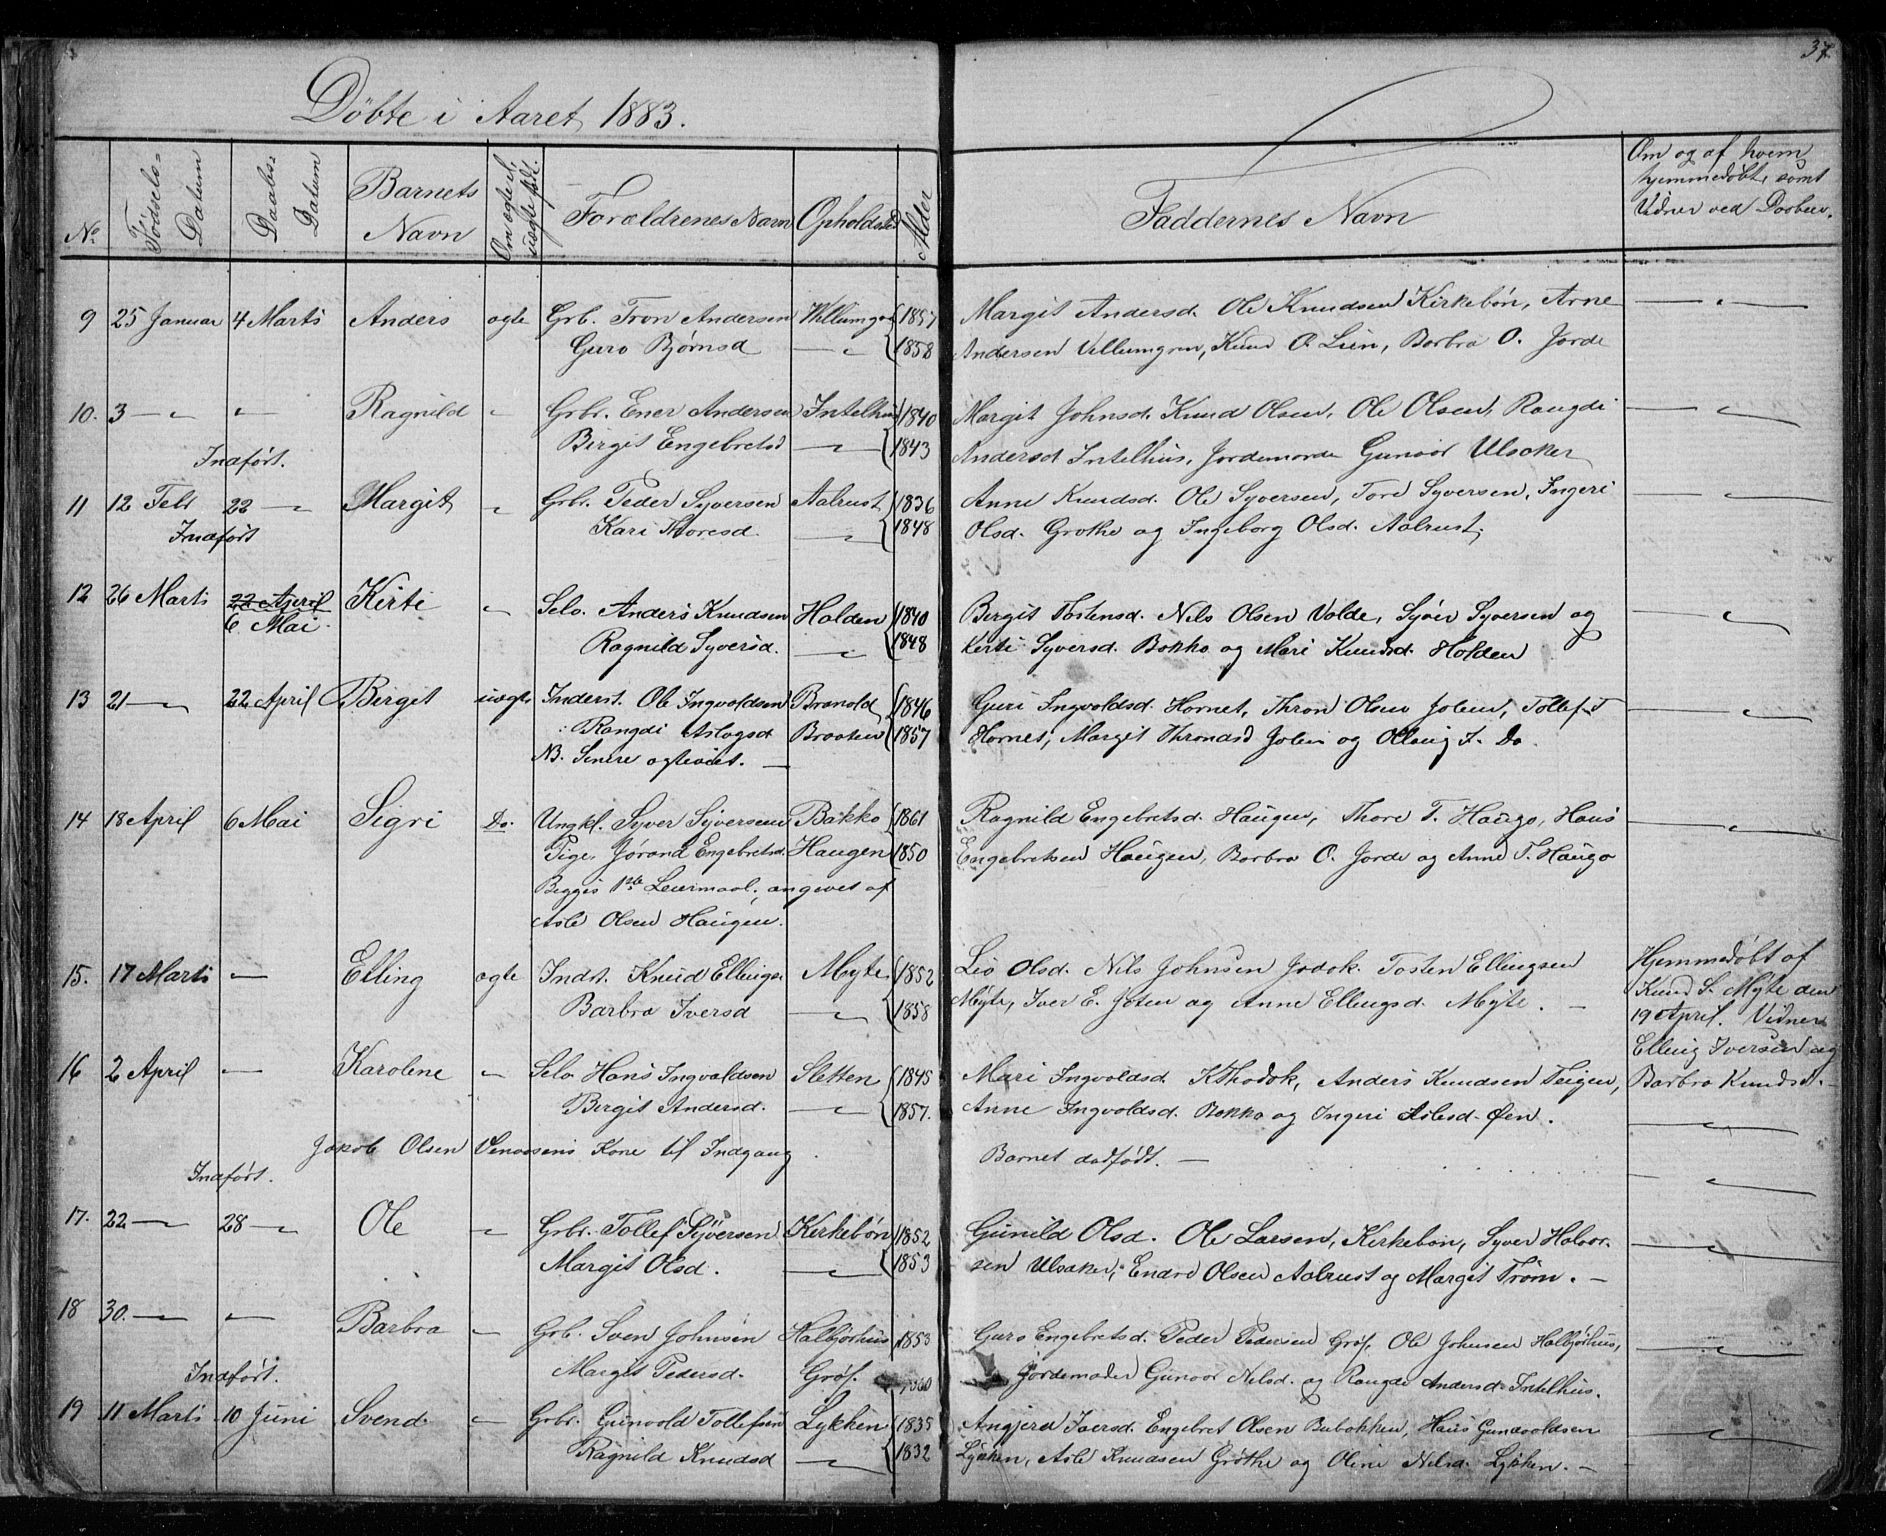 37.
Döbte i Aaret 1883.
No. Födsels= Datum Daabs= Datum Barnets Navn Om ægte el. uægte föd. Forældrenes Navn Opholdsted Alder Faddernes Navn Om og af hvem hjemmedöbt, samt Vidner ved Daaben.
9 25 Januar 4 Marts Anders ægte Grb. Tron Andersen 1857 Margit Andersd. Ole Knudsen Kirkebön, Arne
Guro Björnsd 1858 Andersen Villumgrn, Knud O. Lien, Barbra O. Jorde
10. 3 — — Ragnild Grbr. Ener Andersen Intelhus 1840 Margit Johnsd. Knud Olsen, Ole Olsen, Rangdi
Birgit Engebretsd 1843 Andersd Intelhus, Jordemorde Gunvor Ulsaker
Indført.
11 12 Febr 22 — Margit Grbr. Peder Syversen Aalrust 1836 Anne Knudsd. Ole Syversen, Tore Syversen, Ingeri
Indført Kari Thoresd. 1848 Olsd. Grøthe og Ingeborg Olsd. Aalrust.
12 26 Marts 22 April Kirti Selv. Anders Knudsen Holden 1840 Birgit Tostensd. Nils Olsen Volde, Syver Syversen og
6 Mai. Ragnild Syversd. 1848 Kirti Syversd. Bakko og Mari Knudsd. Holden
13 21 — 22 April Birgit uægte Inderst. Ole Ingvaldsen 1846 Guri Ingvoldsd. Hornet, Thron Olsen Jolen, Tollef T
Rangdi Aslagsd Braaten 1857 Hornet, Margit Throndsd Jolen og T. Do
NB. Senere ægteviet. —
14 18 April 6 Mai Sigri Do. Ungkl. Syver Syversen Bakko 1861 Ragnild Engebretsd. Haugen, Thore T. Haugo, Hans
Pige, Jørand Engebretsd. Haugen 1850 Engebretsen Haugen, Barbra O. Jorde og Anne T. Haugo
Begges 1ste Leiermaal, angivet af
Asle Olsen Haugen.
15. 17 Marts — Elling ægte Indst. Knud Ellingsn Myte 1852 Liv Olsd. Nils Johnsen Tosten Ellingsen Hjemmedøbt af
Barbra Iversd 1858 Myte, Iver E. Joten og Anne Ellingsd. Myte. — Knud S. Myte den
19 April. Vidner
16 2 April — Karoline Selv Hans Ingvaldsen Sletten 1845 Mari Ingvoldsd. Anders Knudsen Teigen, Elling Iversen og
Birgit Andersd. 1857. Anne Ingvoldsd. Bakko og Ingeri Aslesd. Øen. Barbra Knudsd. —
Jakob Olsen Kone til Indgang. Barnet dødfødt. —
Indført.
17. 22 — 28 — Ole Grbr. Tollef Syversen Kirkebøn 1852 Gunild Olsd. Ole Larsen, Kirkebøn, Syver Halvor-
Margit Olsd. 1853 sen Ulsaker, Endre Olsen Aalrust og Margit Trøim. —
18 30. — — Barbra Grb. Sven Johnsen Halbjørhus 1853 Guro Engebretsd. Peder Pedersen Grøf, Ole Johnsen Halbjørhus,
Indført. Margit Pedersd. Grøf. 1860 Jordemoder Gunvor Nilsd. og Rangdi Andersd. Intelhus.
19 11 Marts 10 Juni Svend. Grbr. Gunvold Tollefsen Lykken 1835 Angjerd Iversd. Engebret Olsen Hans Gundvoldsen
Ragnild Knudsd 1832 Lykken, Asle Knudsen Grøthe og Oline Nilsd. Lykken. —